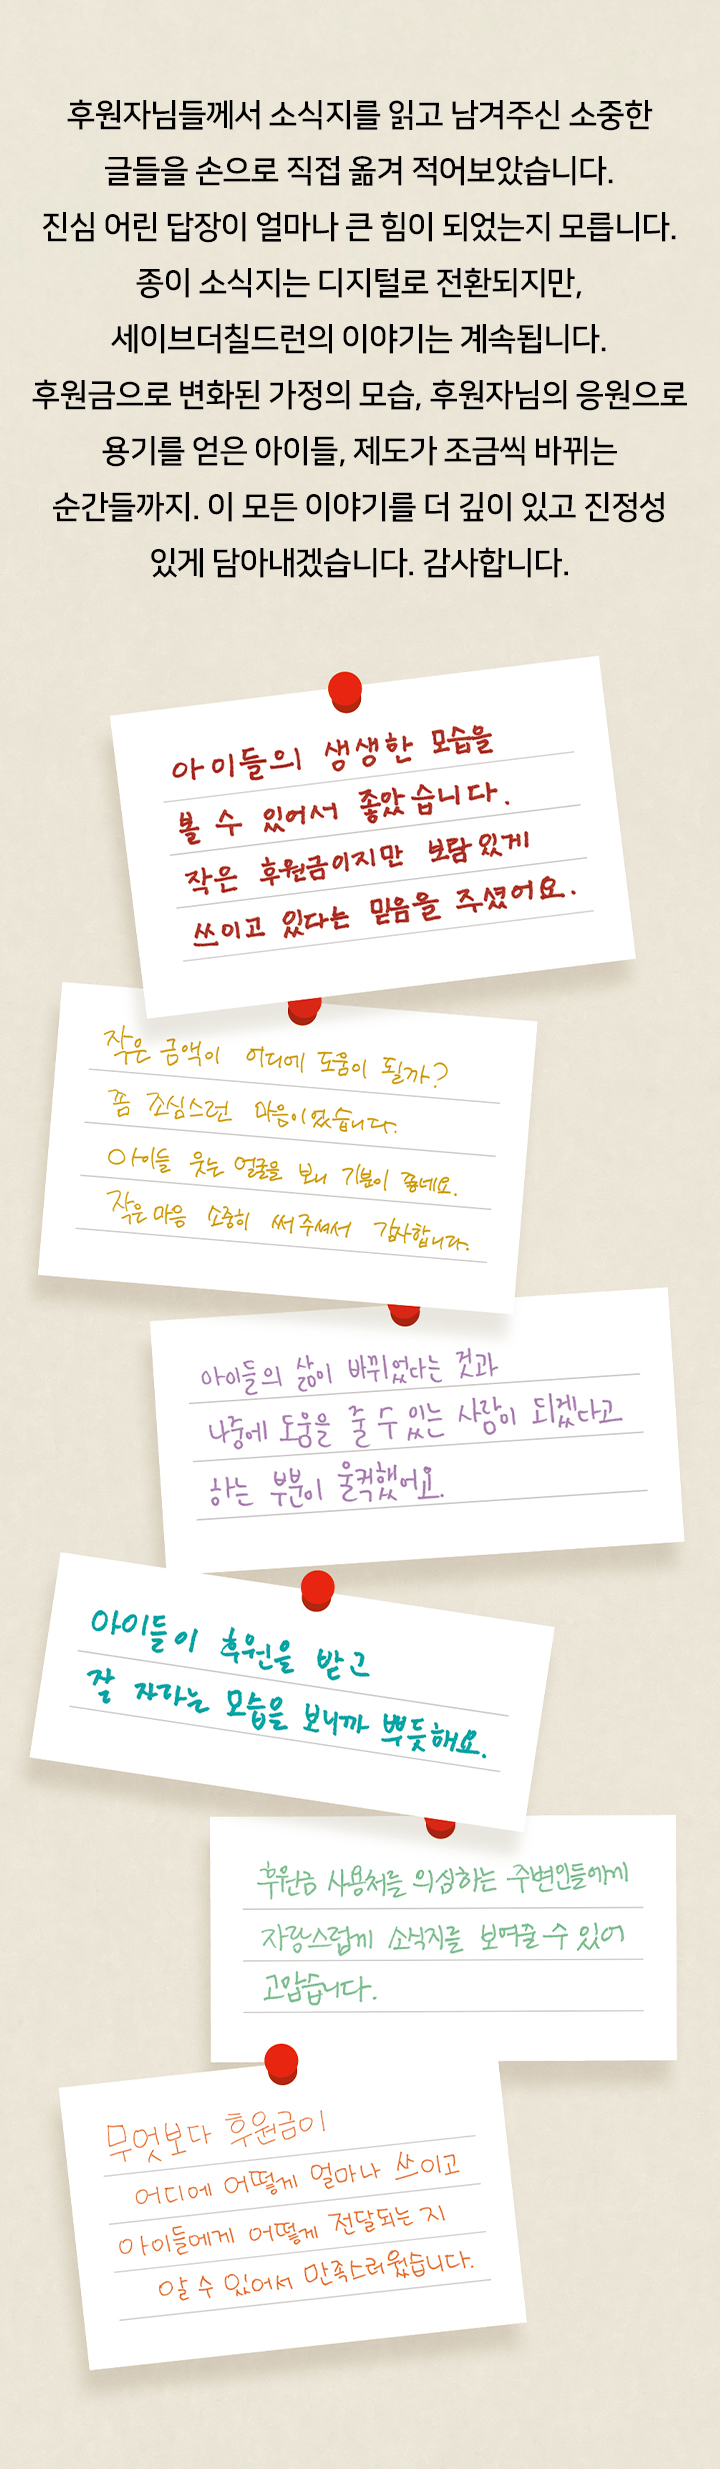 후원자님들께서 소식지를 읽고 남겨주신 소중한
글들을 손으로 직접 옮겨 적어보았습니다.
진심 어린 답장이 얼마나 큰 힘이 되었는지 모릅니다.
종이 소식지는 디지털로 전환되지만,
세이브더칠드런의 이야기는 계속됩니다.
후원금으로 변화된 가정의 모습, 후원자님의 응원으로
용기를 얻은 아이들, 제도가 조금씩 바뀌는
순간들까지. 이 모든 이야기를 더 깊이 있고 진정성
있게 담아내겠습니다. 감사합니다.
아이들의 생생한 모습을
볼 수 있어서 좋았습니다.
작은 후원금이지만 보람있게
쓰이고 있다는 믿음을 주셨어요.
작은 금액이 어디에 도움이 될까?
좀 조심스런 마음이었습니다.
아이들 웃는 얼굴을 보니 기분이 좋네요.
작은 마음 소중히 써주셔서 감사합니다.
아이들의 삶이 바뀌었다는 것과
나중에 도움을 줄 수 있는 사람이 되겠다고
하는 부분이 울컥했어요.
아이들이 후원을 받고
잘 자라는 모습을 보니까 뿌듯해요.
후원금 사용처를 의심하는 주변인들에게
자랑스럽게 소식지를 보여줄 수 있어
고맙습니다.
무엇보다 후원금이
어디에 어떻게 얼마나 쓰이고
아이들에게 어떻게 전달되는 지
알 수 있어서 만족스러웠습니다.